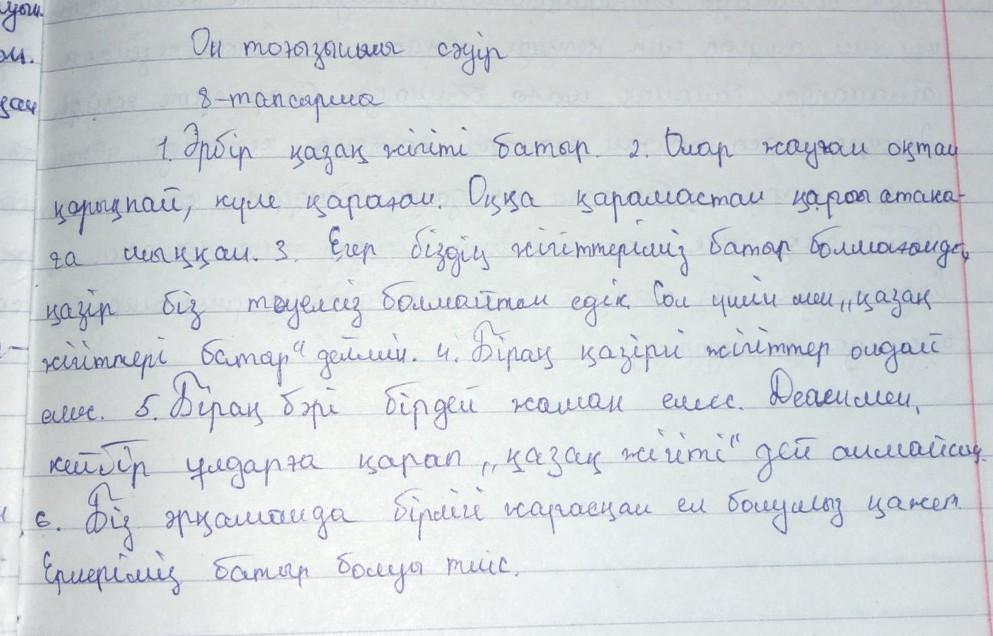 уш.
Он тоғызыншы сәуір
8-тапсырма
1. Әрбір қазақ жігіті батыр. 2. Олар жаудан оқтан
қорықпай, күле қараған. Оққа қарамастан қарсы атака-
ға шыққан. 3. Егер біздің жігіттеріміз батыр болмағанда,
қазір біз тәуелсіз болмайтын едік. Сол үшін мен „қазақ
жігіттері батыр" деймін. 4. Бірақ қазіргі жігіттер ондай
емес. 5. Бірақ бәрі бірдей жаман емес. Дегенмен,
кейбір ұлдарға қарап „қазақ жігіті" дей алмайсың.
6. Біз әрқашанда бірлігі жарасқан ел болуымыз қажет.
Ерлеріміз батыр болуы тиіс.